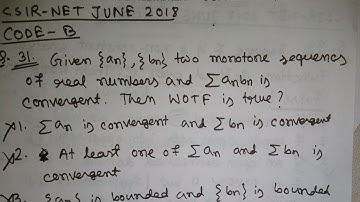 CSIR-NET JUNE 2018
CODE-B
Q. 31. Given {an}, {bn} two monotone sequences
of real numbers and ∑anbn is
convergent. Then WOTF is true?
X1. ∑an is convergent and ∑bn is convergent
X2. At least one of ∑an and ∑bn is
convergent
X3. {an} is bounded and {bn} is bounded